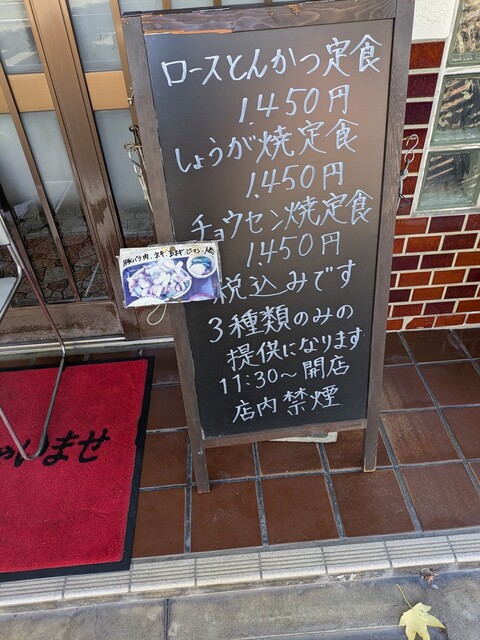 ロースとんかつ定食
1.450円
しょうが焼定食
1.450円
チョウセン焼定食
1.450円
税込みです
3種類のみの
提供になります
11:30〜開店
店内禁煙
豚バラ肉、
いませ